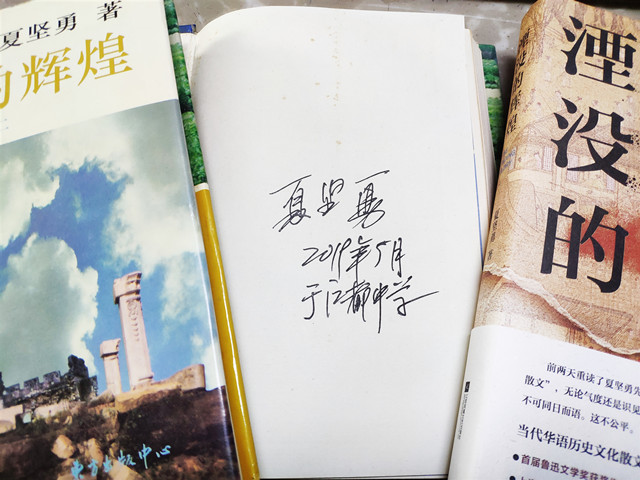 夏坚勇 著
的辉煌
东方出版中心
夏坚勇
2019年5月
于江都中学
湮没的
湮没的辉煌
前两天重读了夏坚勇先
散文”，无论气度还是识见
不可同日而语。这不公平。
当代华语历史文化散文
●首届鲁迅文学奖获奖